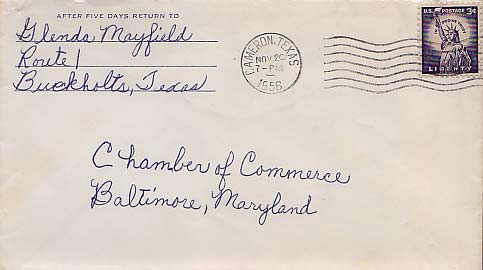 AFTER FIVE DAYS RETURN TO
Glenda Mayfield
Route 1
Buckholts, Texas
CAMERON, TEXAS
NOV 20
7-PM
1956
U.S. POSTAGE 3¢
IN GOD WE TRUST
LIBERTY
Chamber of Commerce
Baltimore, Maryland